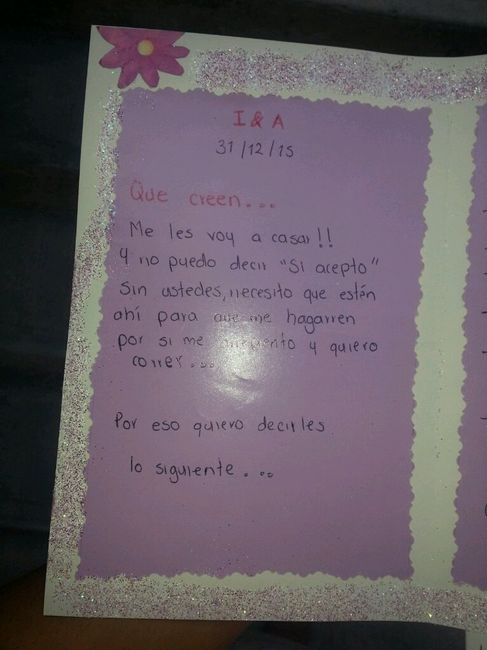 I & A
31/12/15
Que creen...
Me les voy a casar!!
y no puedo decir "Si acepto"
sin ustedes, necesito que estén
ahí para que me hagarren
por si me y quiero
correr...
Por eso quiero decirles
lo siguiente...